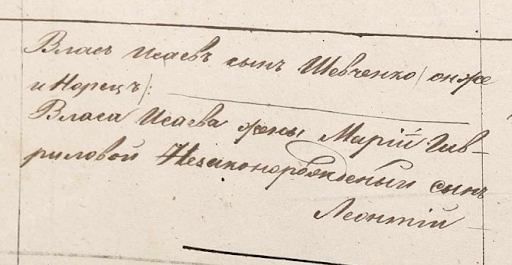 Власъ Исаевъ сынъ Шевченко (онже
и Норецъ):
Власа Исаева жены Марiй Гав-
риловой Незаконорожденый сынъ
Леонтiй